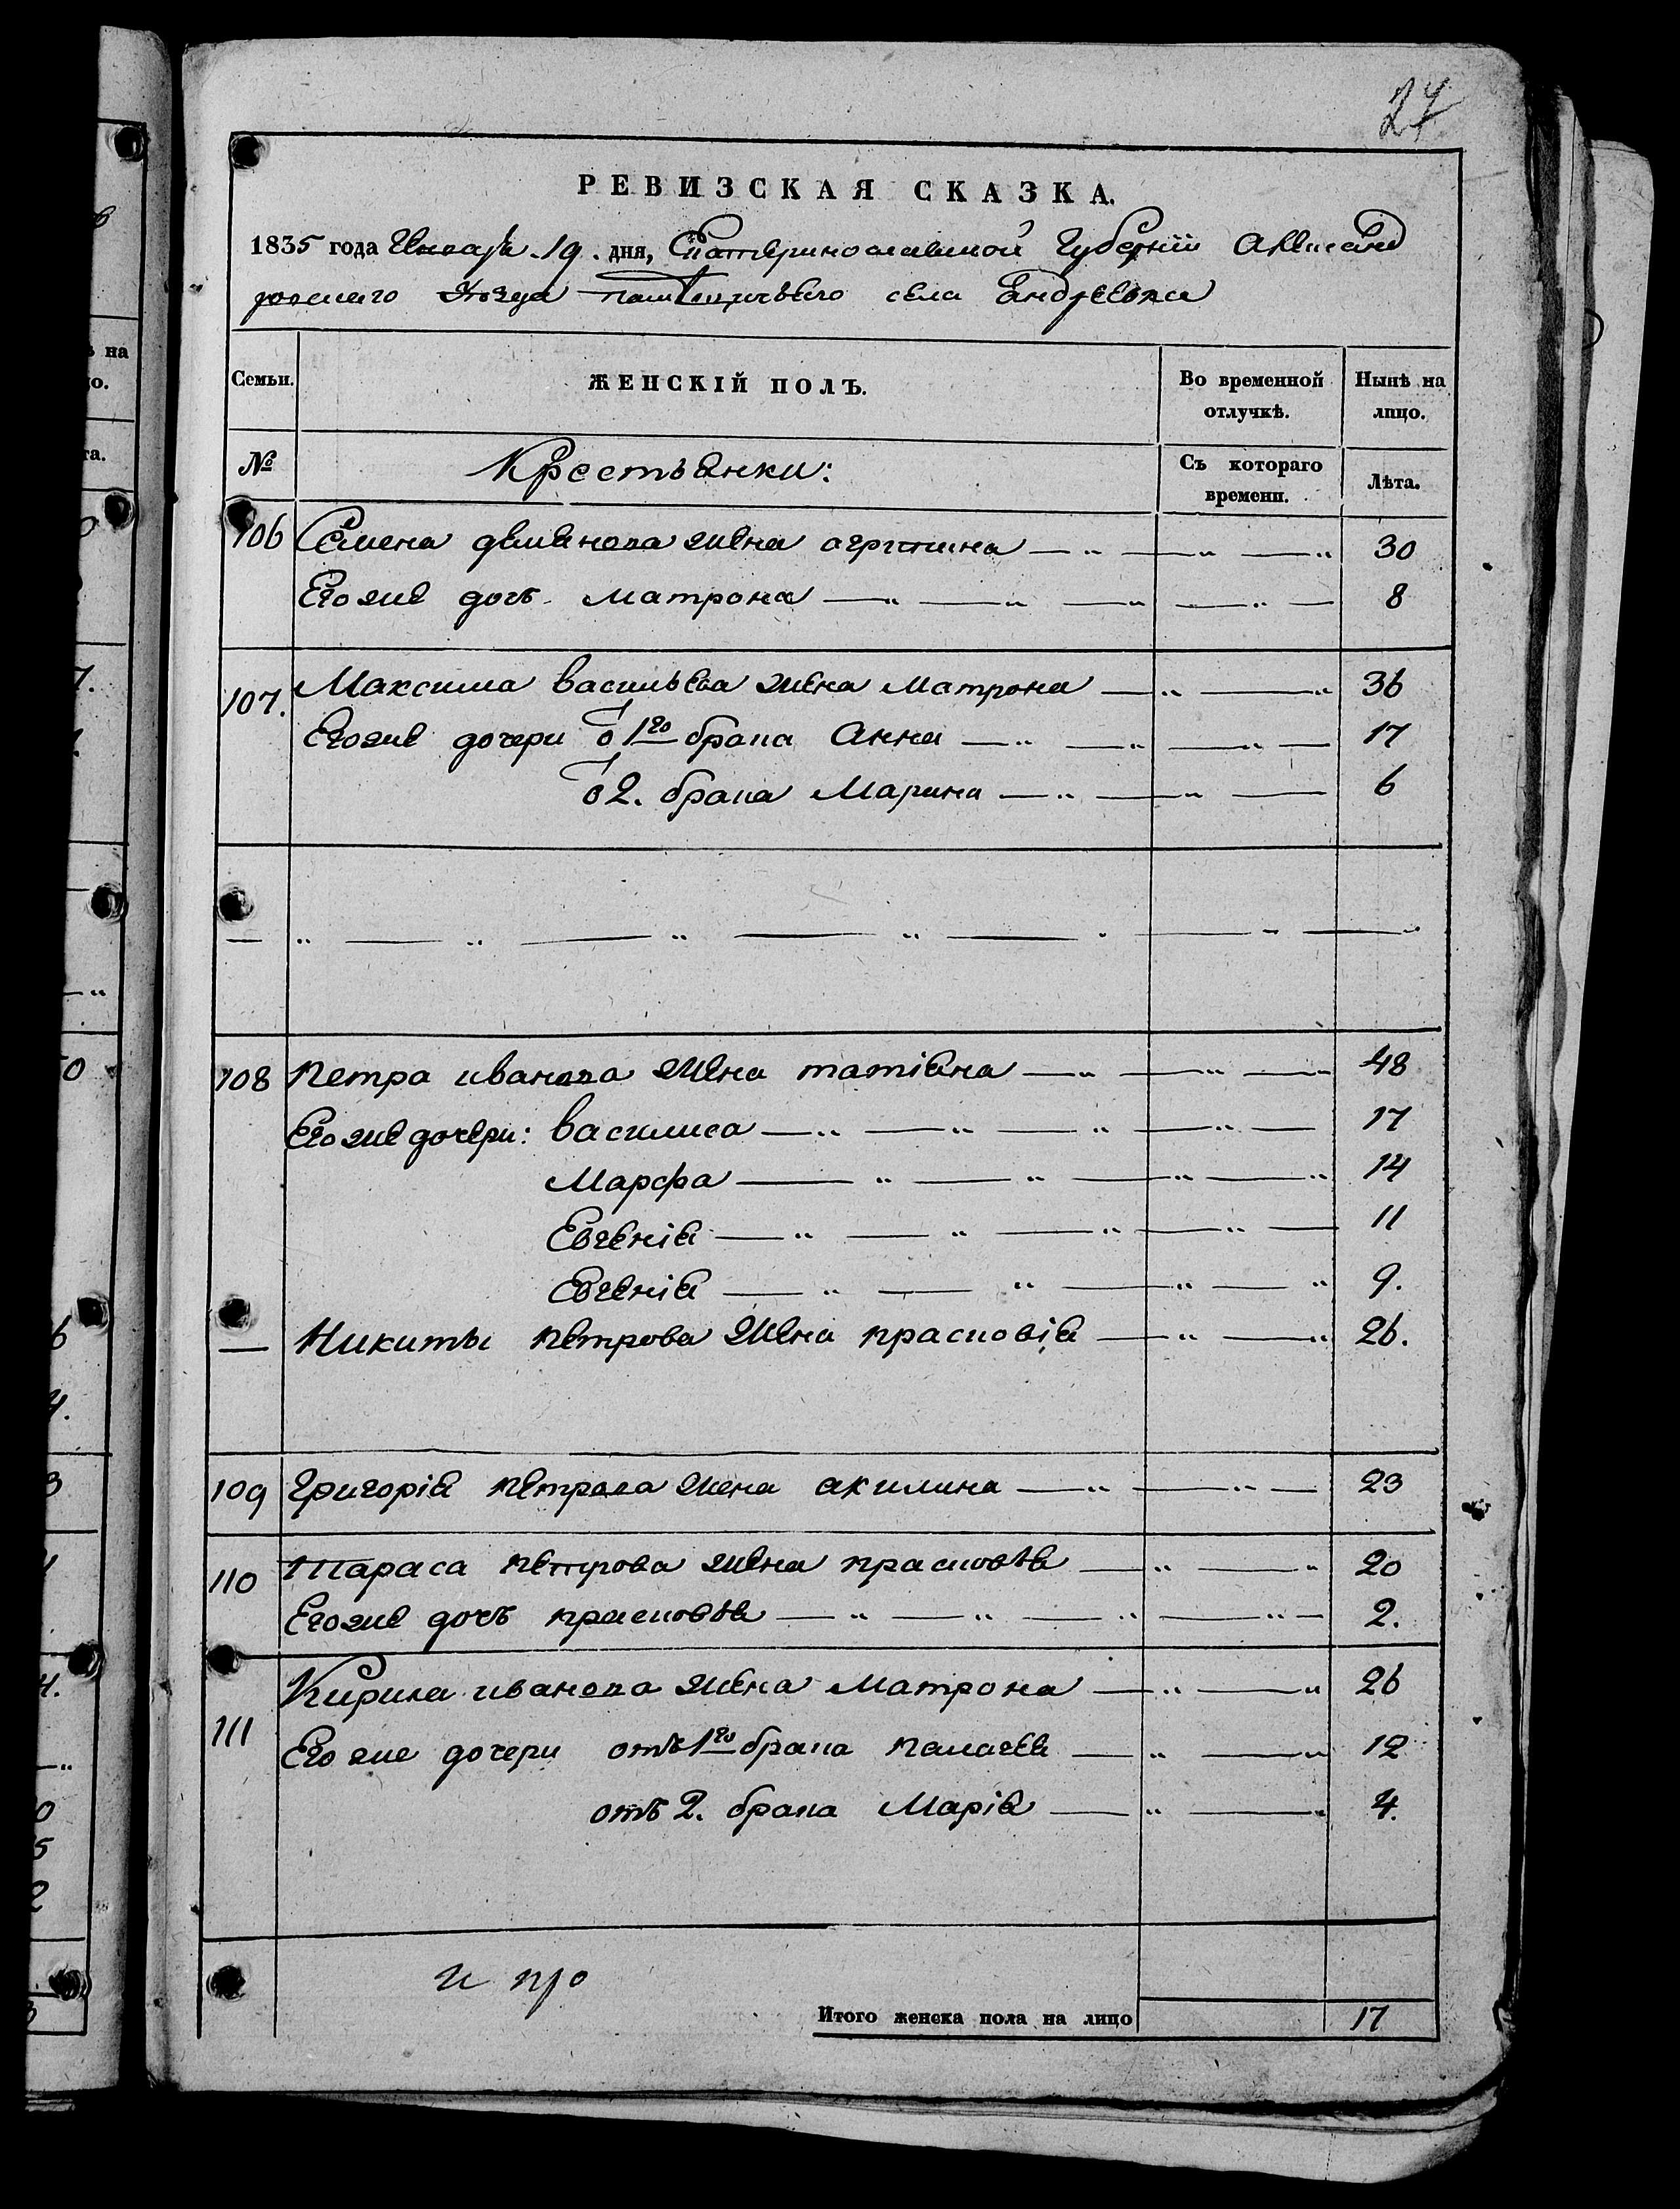 27
РЕВИЗСКАЯ СКАЗКА.
1835 года Генваря 19. дня, Екатеринославской Губерніи Александ
ровскаго Уѣзда села Андреевки
Семьи. ЖЕНСКІЙ ПОЛЪ. Во временной отлучкѣ. Нынѣ на лицо.
№ Крестьянки: Съ котораго времени. Лѣта.
106 Семена демьянова жена агрипина — „ — „ — „ 30
Егоже дочь матрона — „ — „ — „ — „ — 8
107. Максима васильева жена матрона — „ — „ 36
Егоже дочери от 1го брака Анна — „ — „ — „ — 17
от 2. брака Марина — „ — „ — 6
— „ — „ — „ — „ — „ — „ — „
108 Петра иванова жена татіяна — „ — „ — „ 48
Егоже дочери: василиса — „ — „ — „ — „ — 17
Марфа — „ — „ — „ — „ 14
Евгенія — „ — „ — „ — „ — 11
Евгенія — „ — „ — „ — „ 9.
— Никиты петрова жена прасковія — „ — „ 26.
109 Григорія петрова жена акилина — „ — „ — 23
110 Тараса петрова жена прасковѣя — „ — „ 20
Егоже дочь прасковѣя — „ — „ — „ — „ — 2.
Кирила иванова жена матрона — „ — „ 26
111 Егоже дочери отъ 1го брака палагея — „ — „ 12
отъ 2. брака Марія — „ — „ 4.
и про
Итого женска пола на лицо 17